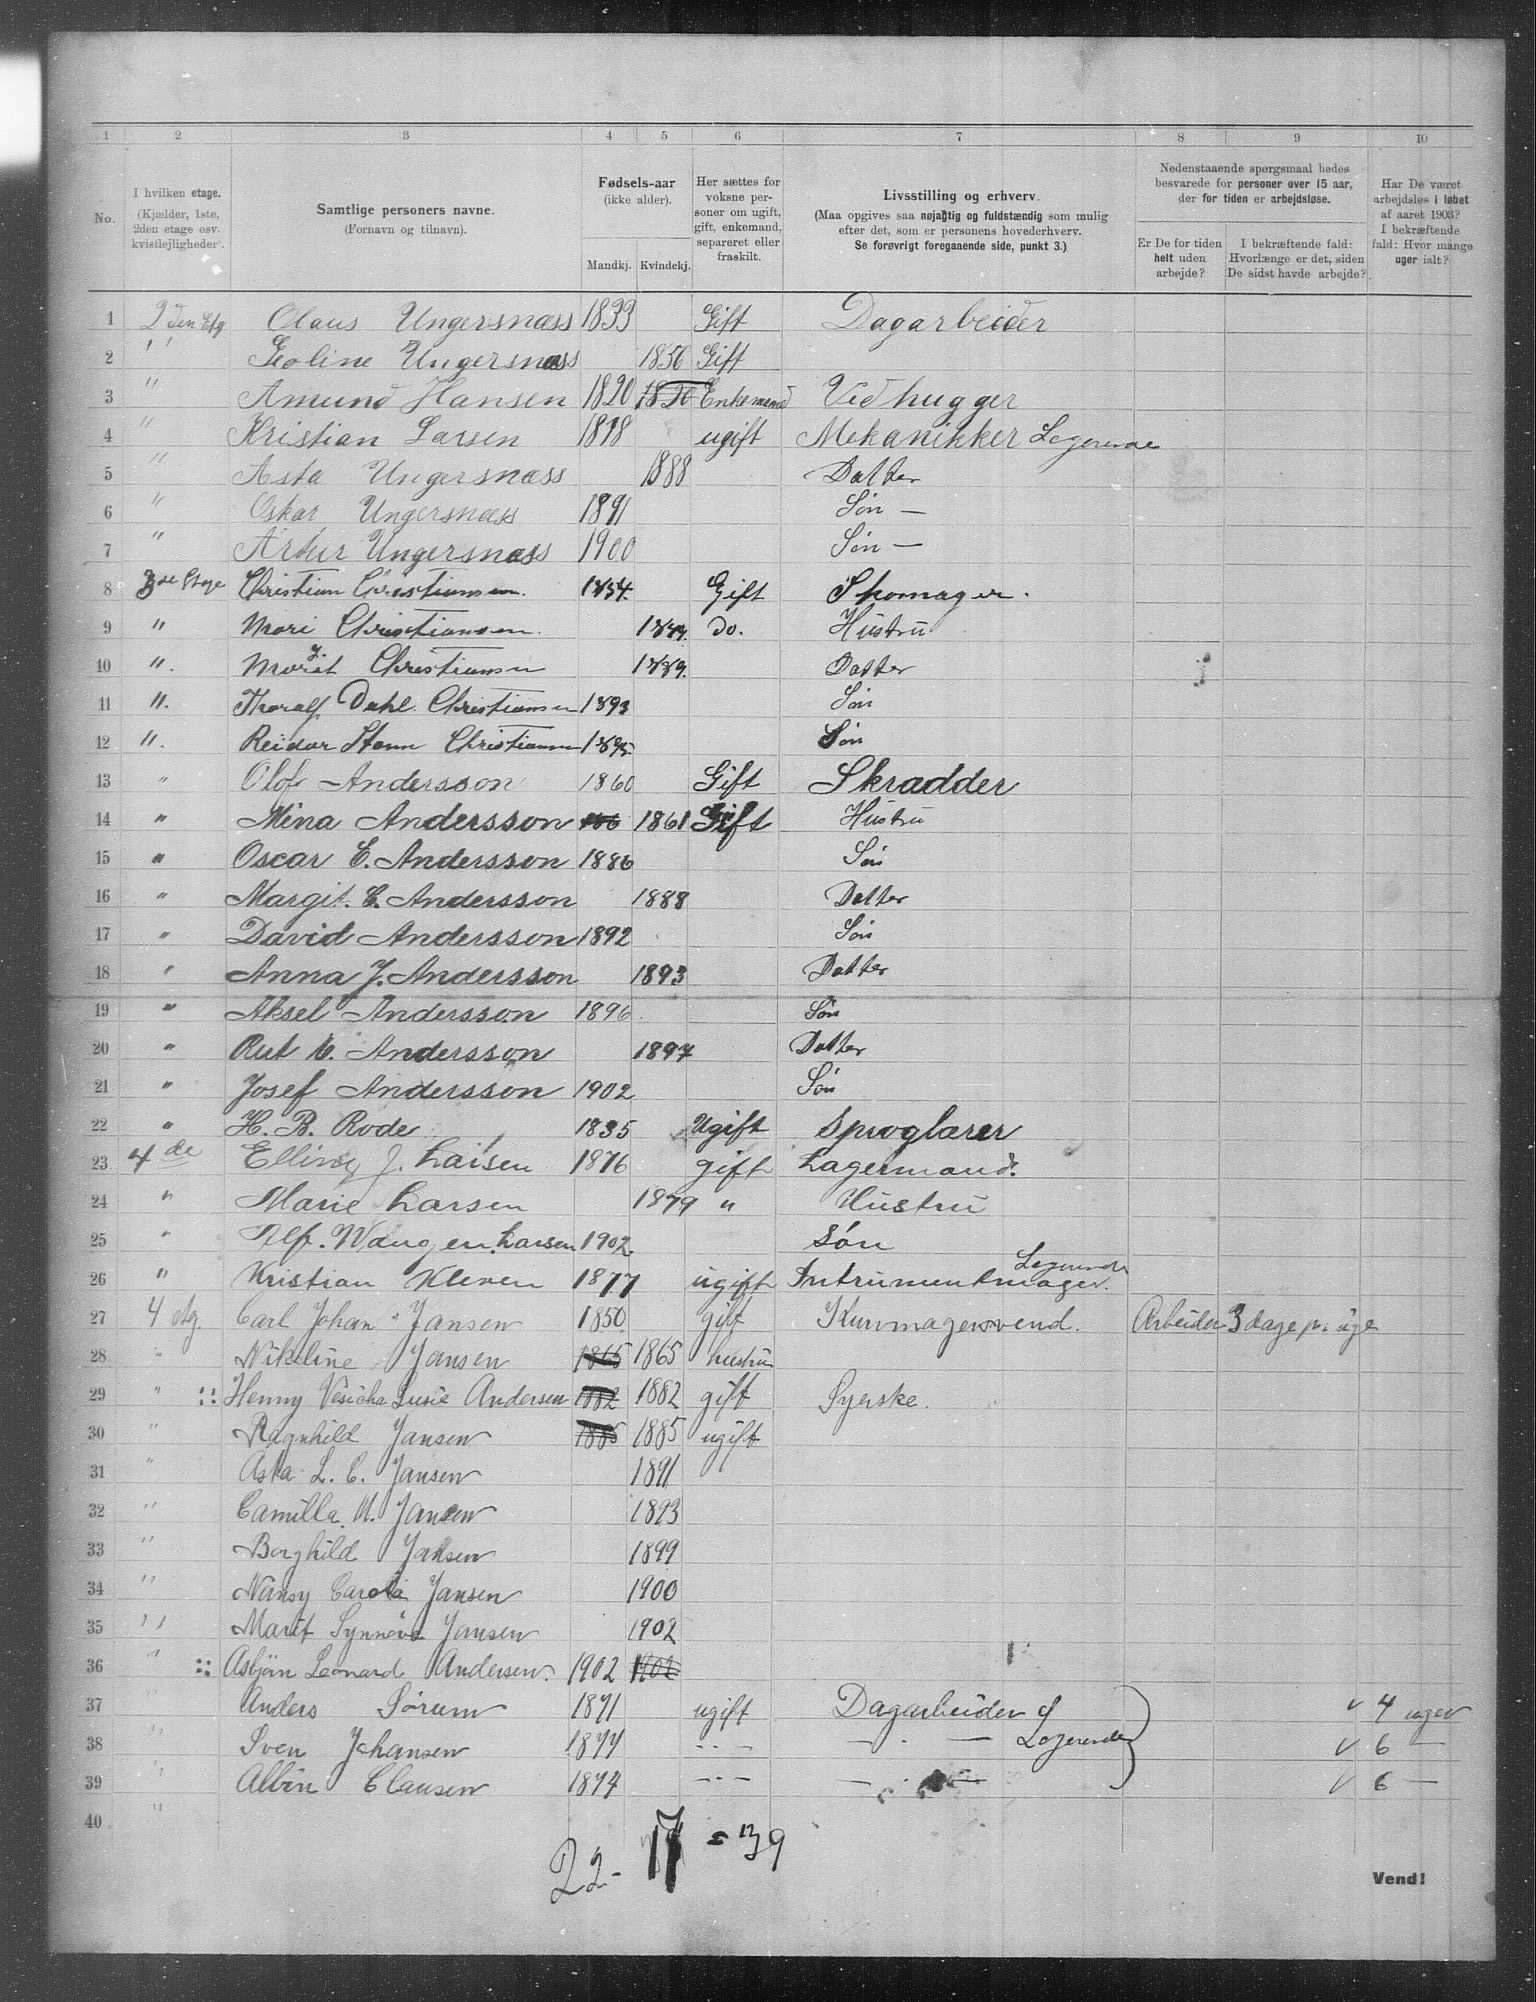 1 2 3 4 5 6 7 8 9 10
No.
I hvilken etage.
(Kjælder, 1ste,
2den etage osv.
kvistlejligheder).
Samtlige personers navne.
(Fornavn og tilnavn).
Fødsels-aar
(ikke alder).
Mandkj. Kvindekj.
Her sættes for
voksne per-
soner om ugift,
gift, enkemand,
separeret eller
fraskilt.
Livsstilling og erhverv.
(Maa opgives saa nøjagtig og fuldstændig som mulig
efter det, som er personens hovederhverv.
Se forøvrigt foregaaende side, punkt 3.)
Nedenstaaende spørgsmaal bedes
besvarede for personer over 15 aar,
der for tiden er arbejdsløse.
Er De for tiden
helt uden
arbejde?
I bekræftende fald:
Hvorlænge er det, siden
De sidst havde arbejde?
Har De været
arbejdsløs i løbet
af aaret 1903?
I bekræftende
fald: Hvor mange
uger ialt?
1 2den Etg Olaus Ungersnæss 1833 Gift Dagarbeider
2 " Ungersnæss 1856 Gift
3 " Amund Hansen 1820 1820 Enkemand Vedhugger
4 " Kristian Larsen 1878 ugift Mekanikker Logerende
5 " Asta Ungersnæss 1888 Datter
6 " Oskar Ungersnæss 1891 Søn —
7 " Artur Ungersnæss 1900 Søn —
8 3de Etage Christian Christiansen. 1854. Gift Skomager.
9 " Mari Christiansen. Do. Hustru
10 ". Christiansen 1889. Datter
11 ". Thoralf Dahl Christiansen 1893 Søn
12 ". Reidar Christiansen Søn
13 " Olof Andersson 1860 Gift Skradder
14 " Mina Andersson 1861 Gift Hustru
15 " Oscar E. Andersson 1886 Søn
16 " Margit. C. Andersson 1888 Datter
17 " David Andersson 1892 Søn
18 " Anna J. Andersson 1893 Datter
19 " Aksel Andersson 1896 Søn
20 " Rut Andersson 1897 Datter
21 " Josef Andersson 1902 Søn
22 " H. B. Rode 1835 Ugift Sproglærer
23 4de Elling J. Larsen 1876 gift Lagermand.
24 " Marie Larsen 1879 " Hustru
25 " Alf. Waugen Larsen 1902 Søn
26 " Kristian Kleven 1877 ugift Intrumentmager. Logerende
27 4 etg. Carl Johan Jansen 1850 gift Kurvmagersvend. Arbeider 3 dage pr. uge
28 " Nikoline Jansen 1865 1865 hustru
29 " :: Henny Andersen 1882 1882 gift Syerske.
30 " Ragnhild Jansen 1885 1885 ugift
31 " Asta L. C. Jansen 1891
32 " Camilla M. Jansen 1893
33 " Borghild Jansen 1899
34 " Nansy Carola Jansen 1900
35 " Marit Synnøve Jansen 1902
36 " :: Asbjørn Leonard Andersen. 1902 1902
37 " Anders Sørum 1871 ugift Dagarbeider of ✓ 4 uger
38 " Sven Johansen 1877 — " — — " — Logerende ✓ 6 —
39 " Albin Clausen 1874 — " — — " — ✓ 6 —
40 "
22 - 17 = 39
Vend!